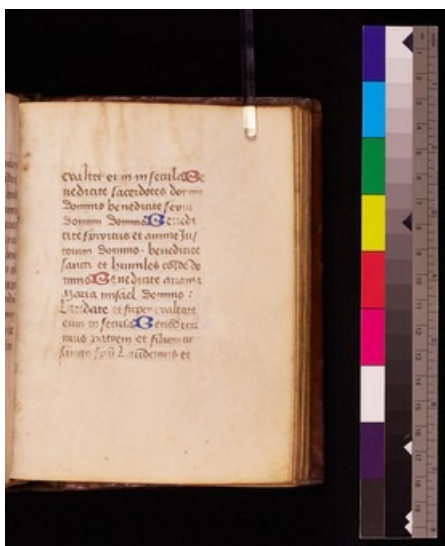 exaltet eum in secula Be
nedicite sacerdotes domini
domino benedicite servi
domini domino Benedi
cite spiritus et anime Jus
torum domino. benedicite
sancti et humiles corde do
mino Benedicite anania
Zaria misael domino:
Laudate et super exaltate
eum in secula Benedica
mus patrem et filium cum
sancto spū Laudemus et